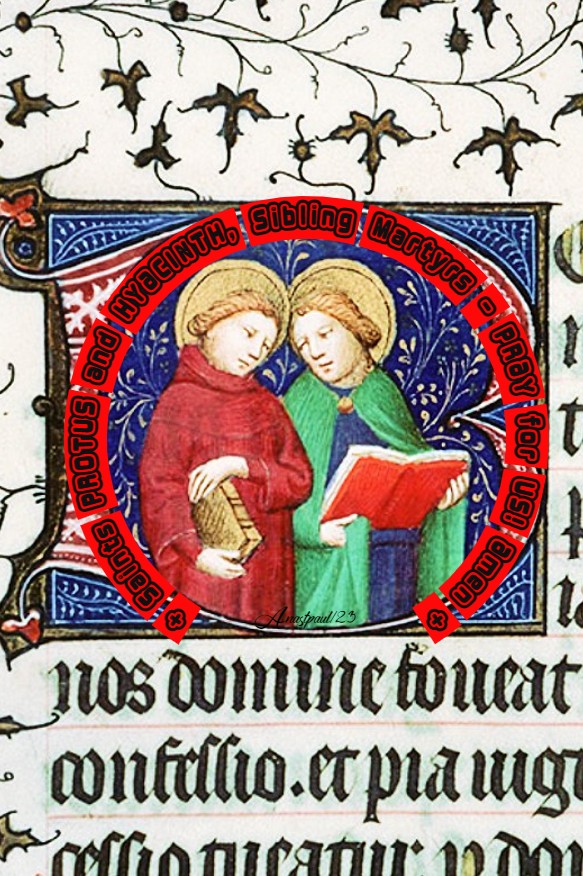 Saints PROTUS and HYACINTH, Sibling Martyrs - PRAY for US! Amen
Anastpaul/23
nos domine foueat
confessio. et pia uigt
cessio tueatur. p don